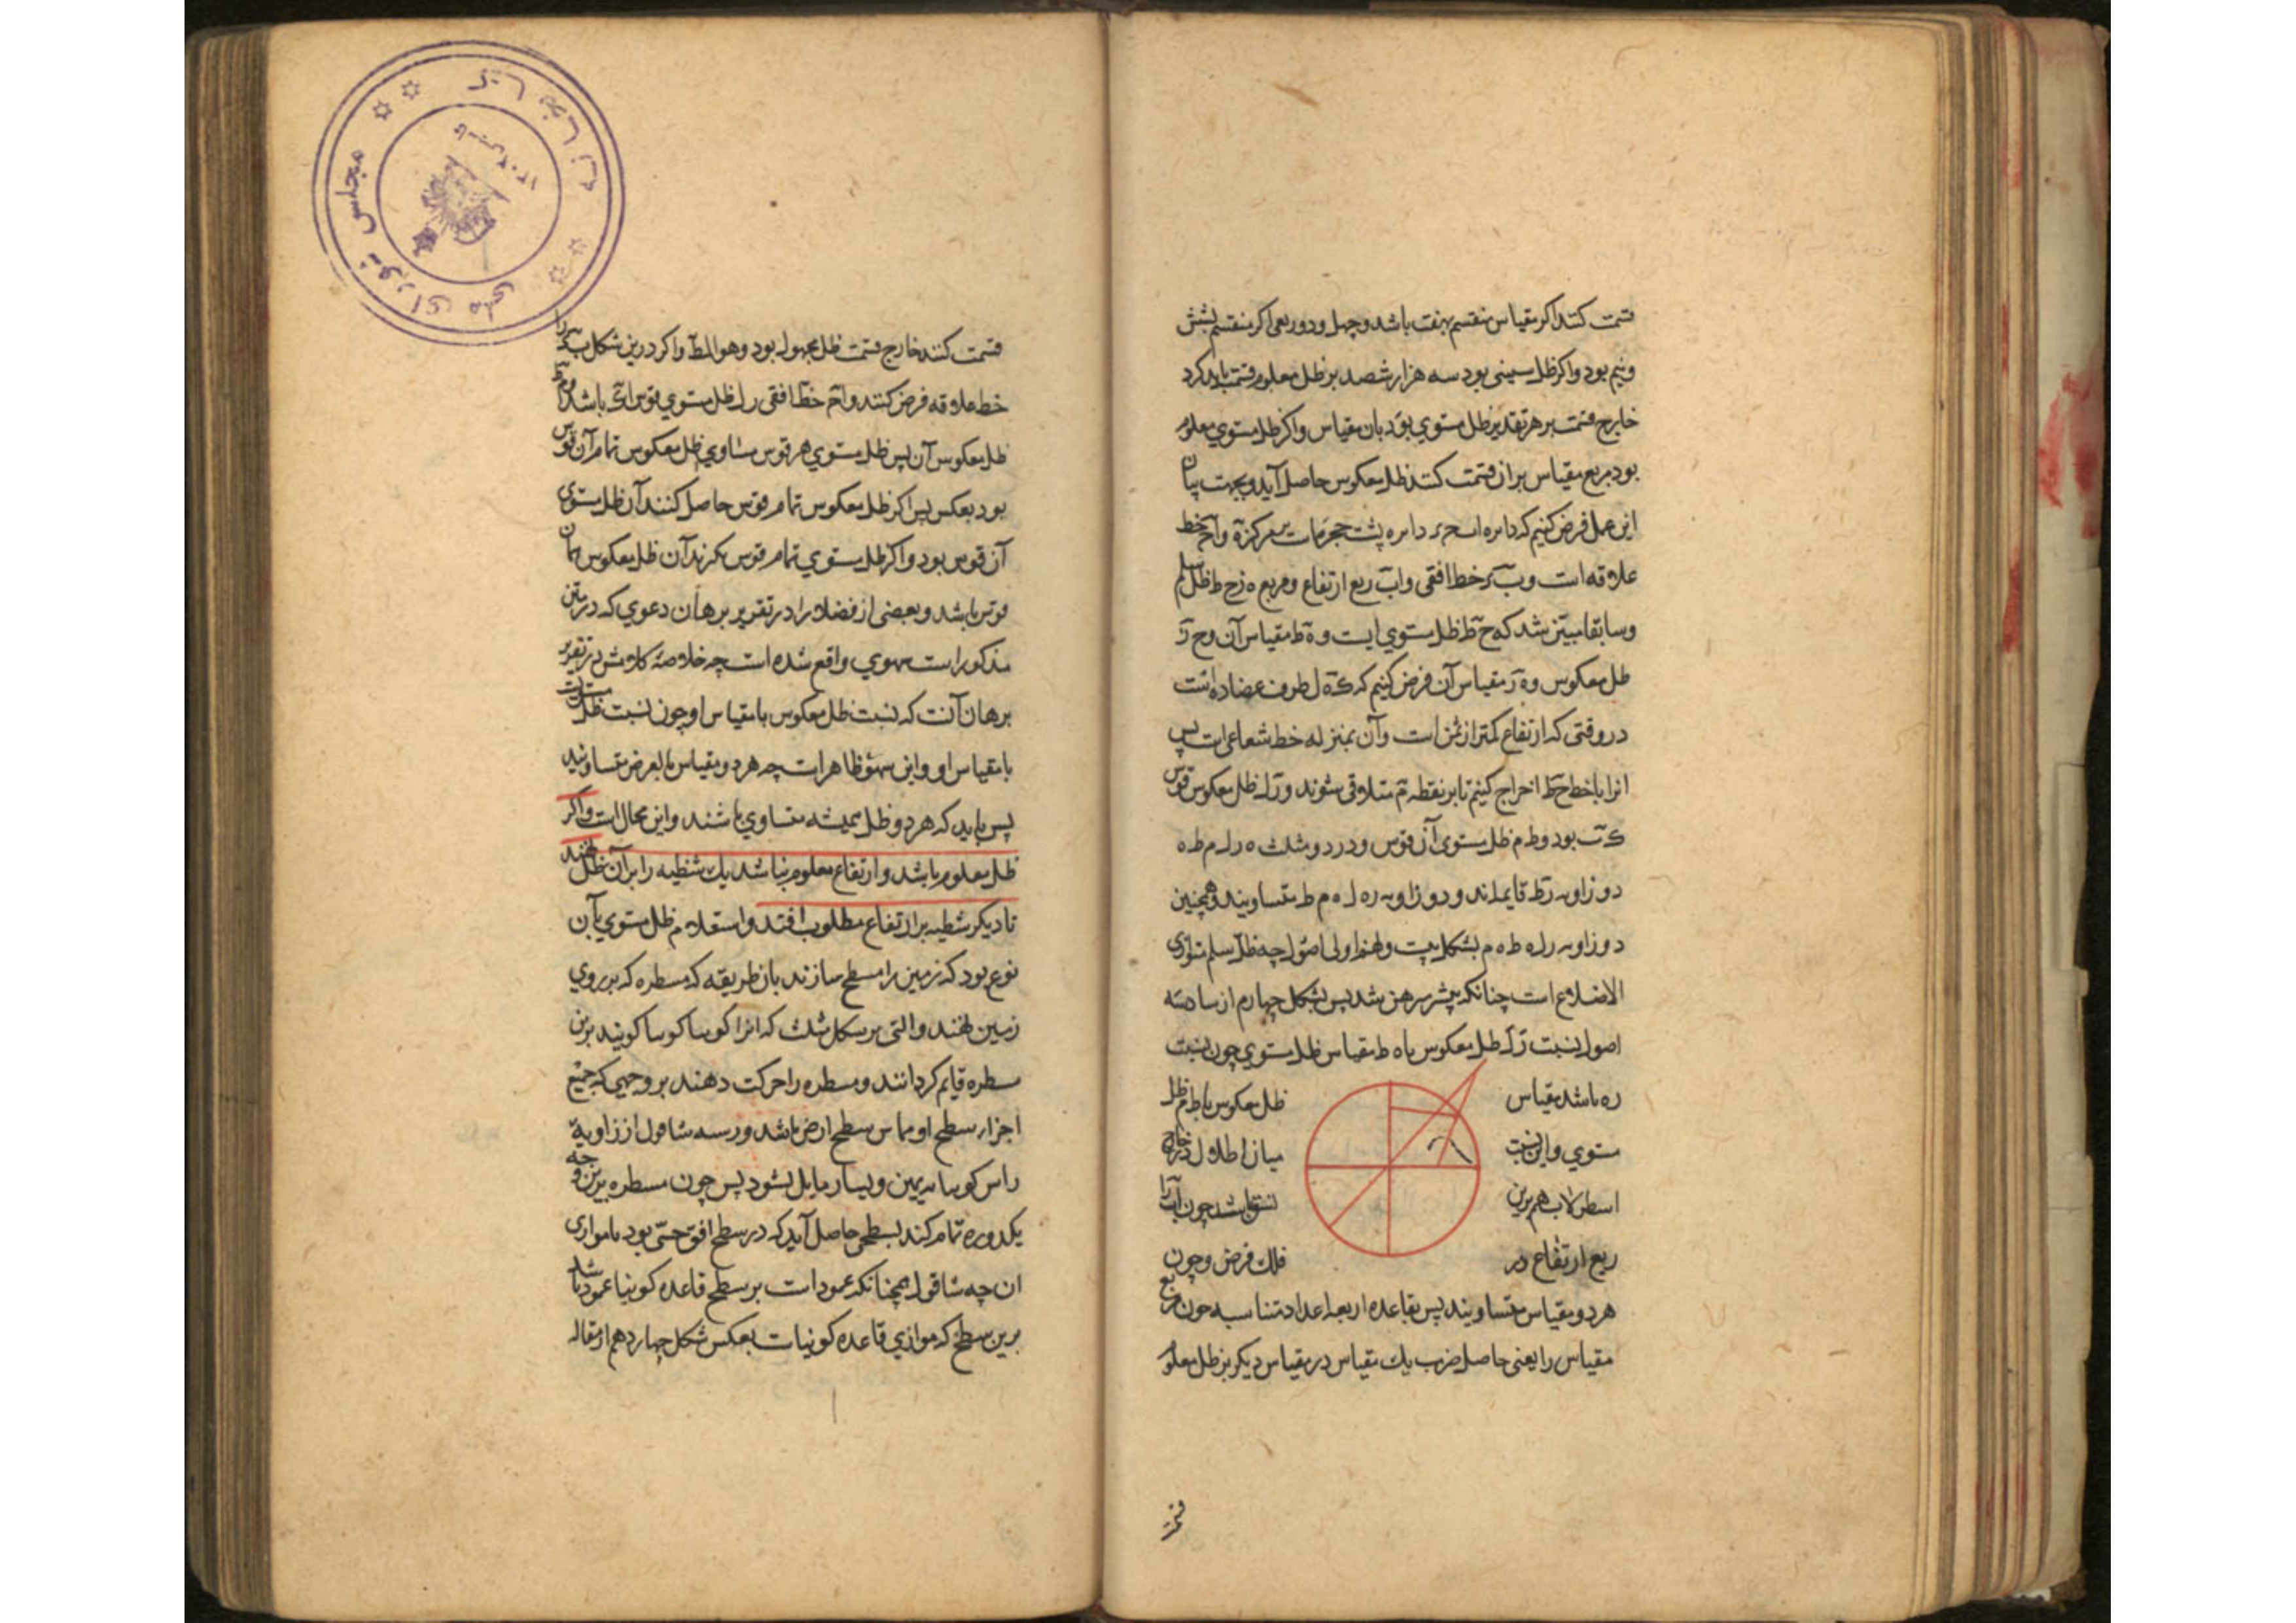 قسمت کنند اکر مقیاس منقسم بهفت باشد و چهل و دو ربعی اکر منقسم بشش
ونیم بود واکر ظل ستینی بود سه هزار ششصد بر ظل معلوم قسمت باید کرد
خارج قسمت بر هر تقدیر ظل مستوي بود بان مقیاس واکر ظل مستوي معلوم
بود مربع مقیاس بران قسمت کنند ظل معکوس حاصل آید وبجهت بیان
این عمل فرض کنیم که دایره دایره پشت حجره است بر مرکز ه و خط
علاقه است و خط افقی و اب ربع ارتفاع ومربع ه زح ط ظل سلم
وسابقا مبین شد که ح ط ظل مستوي است و ه ط مقیاس آن و ح ز
ظل معکوس و ه ز مقیاس آن فرض کنیم که ک ه ل طرف عضاده است
در وقتی که ارتفاع کمتر از ثمن است وآن بمنزله خط شعاعی است پس
انرا با خط ح ط اخراج کنیم تا بر نقطه م متلاقی شوند و ز ل ظل معکوس قوس
ک ب بود و ط م ظل مستوی آن قوس و در دو مثلث ه ز ل م ط ه
دو زاویه ز ط قایمه‌اند و دو زاویه ز ه ل ه م ط متساویند وهمچنین
دو زاویه ز ل ه ط ه م بشکل اولی اصول چه ظل سلم متوازی
الاضلاع است چنانکه پیشتر مبرهن شد پس بشکل چهارم از سادسه
اصول نسبت ز ل ظل معکوس با ه ط مقیاس ظل مستوي چون نسبت
ز ه باشد مقیاس ظل معکوس با ط م ظل
مستوي واین نسبت میان اظلال در خارج
اسطرلاب هم برین نسق باشد چون اب را
ربع ارتفاع در فلک فرض وچون
هر دو مقیاس متساویند پس بقاعده اربعه اعداد متناسبه چون مربع
مقیاس را یعنی حاصل ضرب یک مقیاس در مقیاس دیکر بر ظل معلوم
قسمت کنند خارج قسمت ظل مجهول بود وهو المط واکر درین شکل را
خط علاقه فرض کنند و خط افقی ظل مستوي قوس باشد
ظل معکوس آن پس ظل مستوي هر قوس مساوي ظل معکوس تمام آن قوس
بود بعکس پس اکر ظل معکوس تمام قوس حاصل کنند آن ظل مستوی
آن قوس بود واکر ظل مستوي تمام قوس بکرند آن ظل معکوس همان
قوس باشد وبعضی از فضلا را در تقریر برهان دعوي که در متن
مذکور است سهوي واقع شده است چه خلاصهٔ کلامش در تقریر
برهان آنست که نسبت ظل معکوس با مقیاس او چون نسبت ظل مستویست
با مقیاس او و این سهو ظاهر است چه هر دو مقیاس بالعرض متساویند
پس باید که هر دو ظل همیشه متساوي باشند واین محال است واکر
ظل معلوم باشد و ارتفاع معلوم نباشد یک شظیه را بر آن ظل نهند
تا دیکر شظیه بر ارتفاع مطلوب افتد واستعلام ظل مستوي بآن
نوع بود که زمین را مسطح سازند بان طریقه که مسطره که بر روي
زمین نهند و التی بر شکل مثلث که انرا کونیا کویند برین
مسطره قایم کردانند و مسطره را حرکت دهند بر وجهی که جمیع
اجزاء سطح او مماس سطح ارض باشد و ریسه شاقول از زاویهٔ
راس کونیا بیمین ویسار مایل نشود پس چون مسطره برین وجه
یکدوره تمام کند بسطحی حاصل آید که در سطح افق حسّی بود یا موازی
ان چه شاقول همچنانکه عمود است بر سطح قاعده کونیا عمود باشد
برین سطح که موازي قاعده کونیاست بعکس شکل چهاردهم از مقاله
قسمت
مجلس شورای ملی
کتابخانه